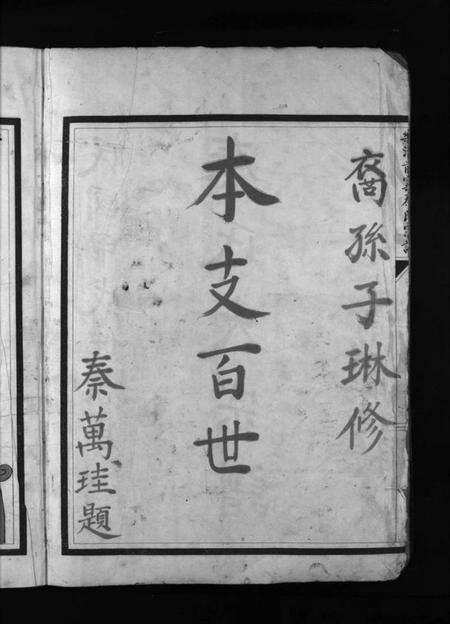 裔孫子琳修
本支百世
秦萬珪題